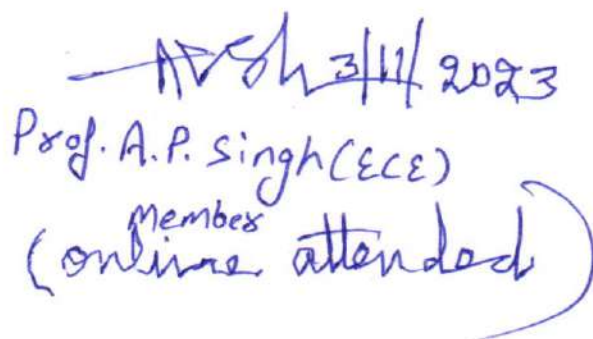 3/11/2023
Prof. A.P. Singh (ECE)
member
(online attended)